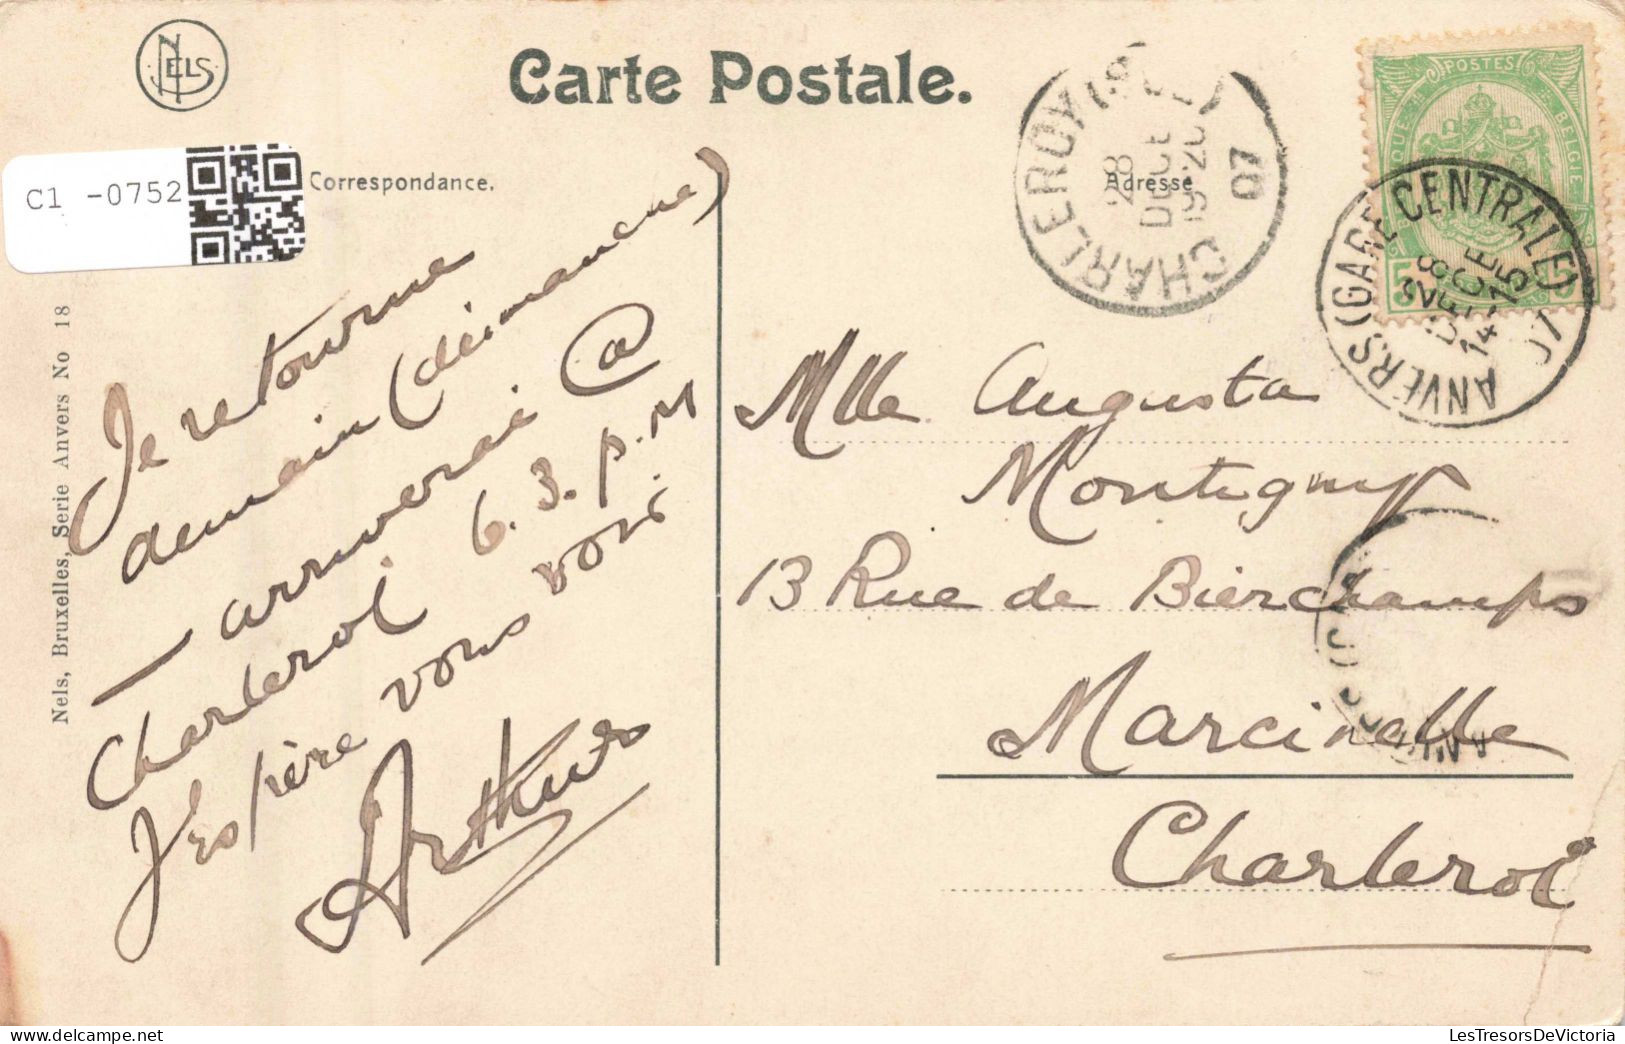 NELS
Carte Postale.
C1 -0752
Correspondance.
Adresse
Nels, Bruxelles, Serie Anvers No 18
Je retourne
demain (dimanche)
arriverai @
Charleroi 6.3.p.M
J'espère vous voir
Arthur
Mlle Augusta
Montigny
13 Rue de Bierchamps
Marcinelle
Charleroi
CHARLEROY
28
19-20
07
POSTES
BELGIQUE
5 5
ANVERS (GARE CENTRALE)
28
DECE
14-15
07
LesTresorsDeVictoria.com